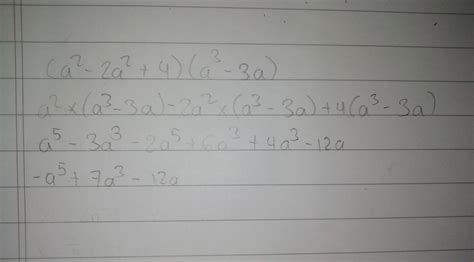 (a² - 2a² + 4)(a³ - 3a)
a² × (a³ - 3a) - 2a² × (a³ - 3a) + 4(a³ - 3a)
a⁵ - 3a³ - 2a⁵ + 6a³ + 4a³ - 12a
-a⁵ + 7a³ - 12a